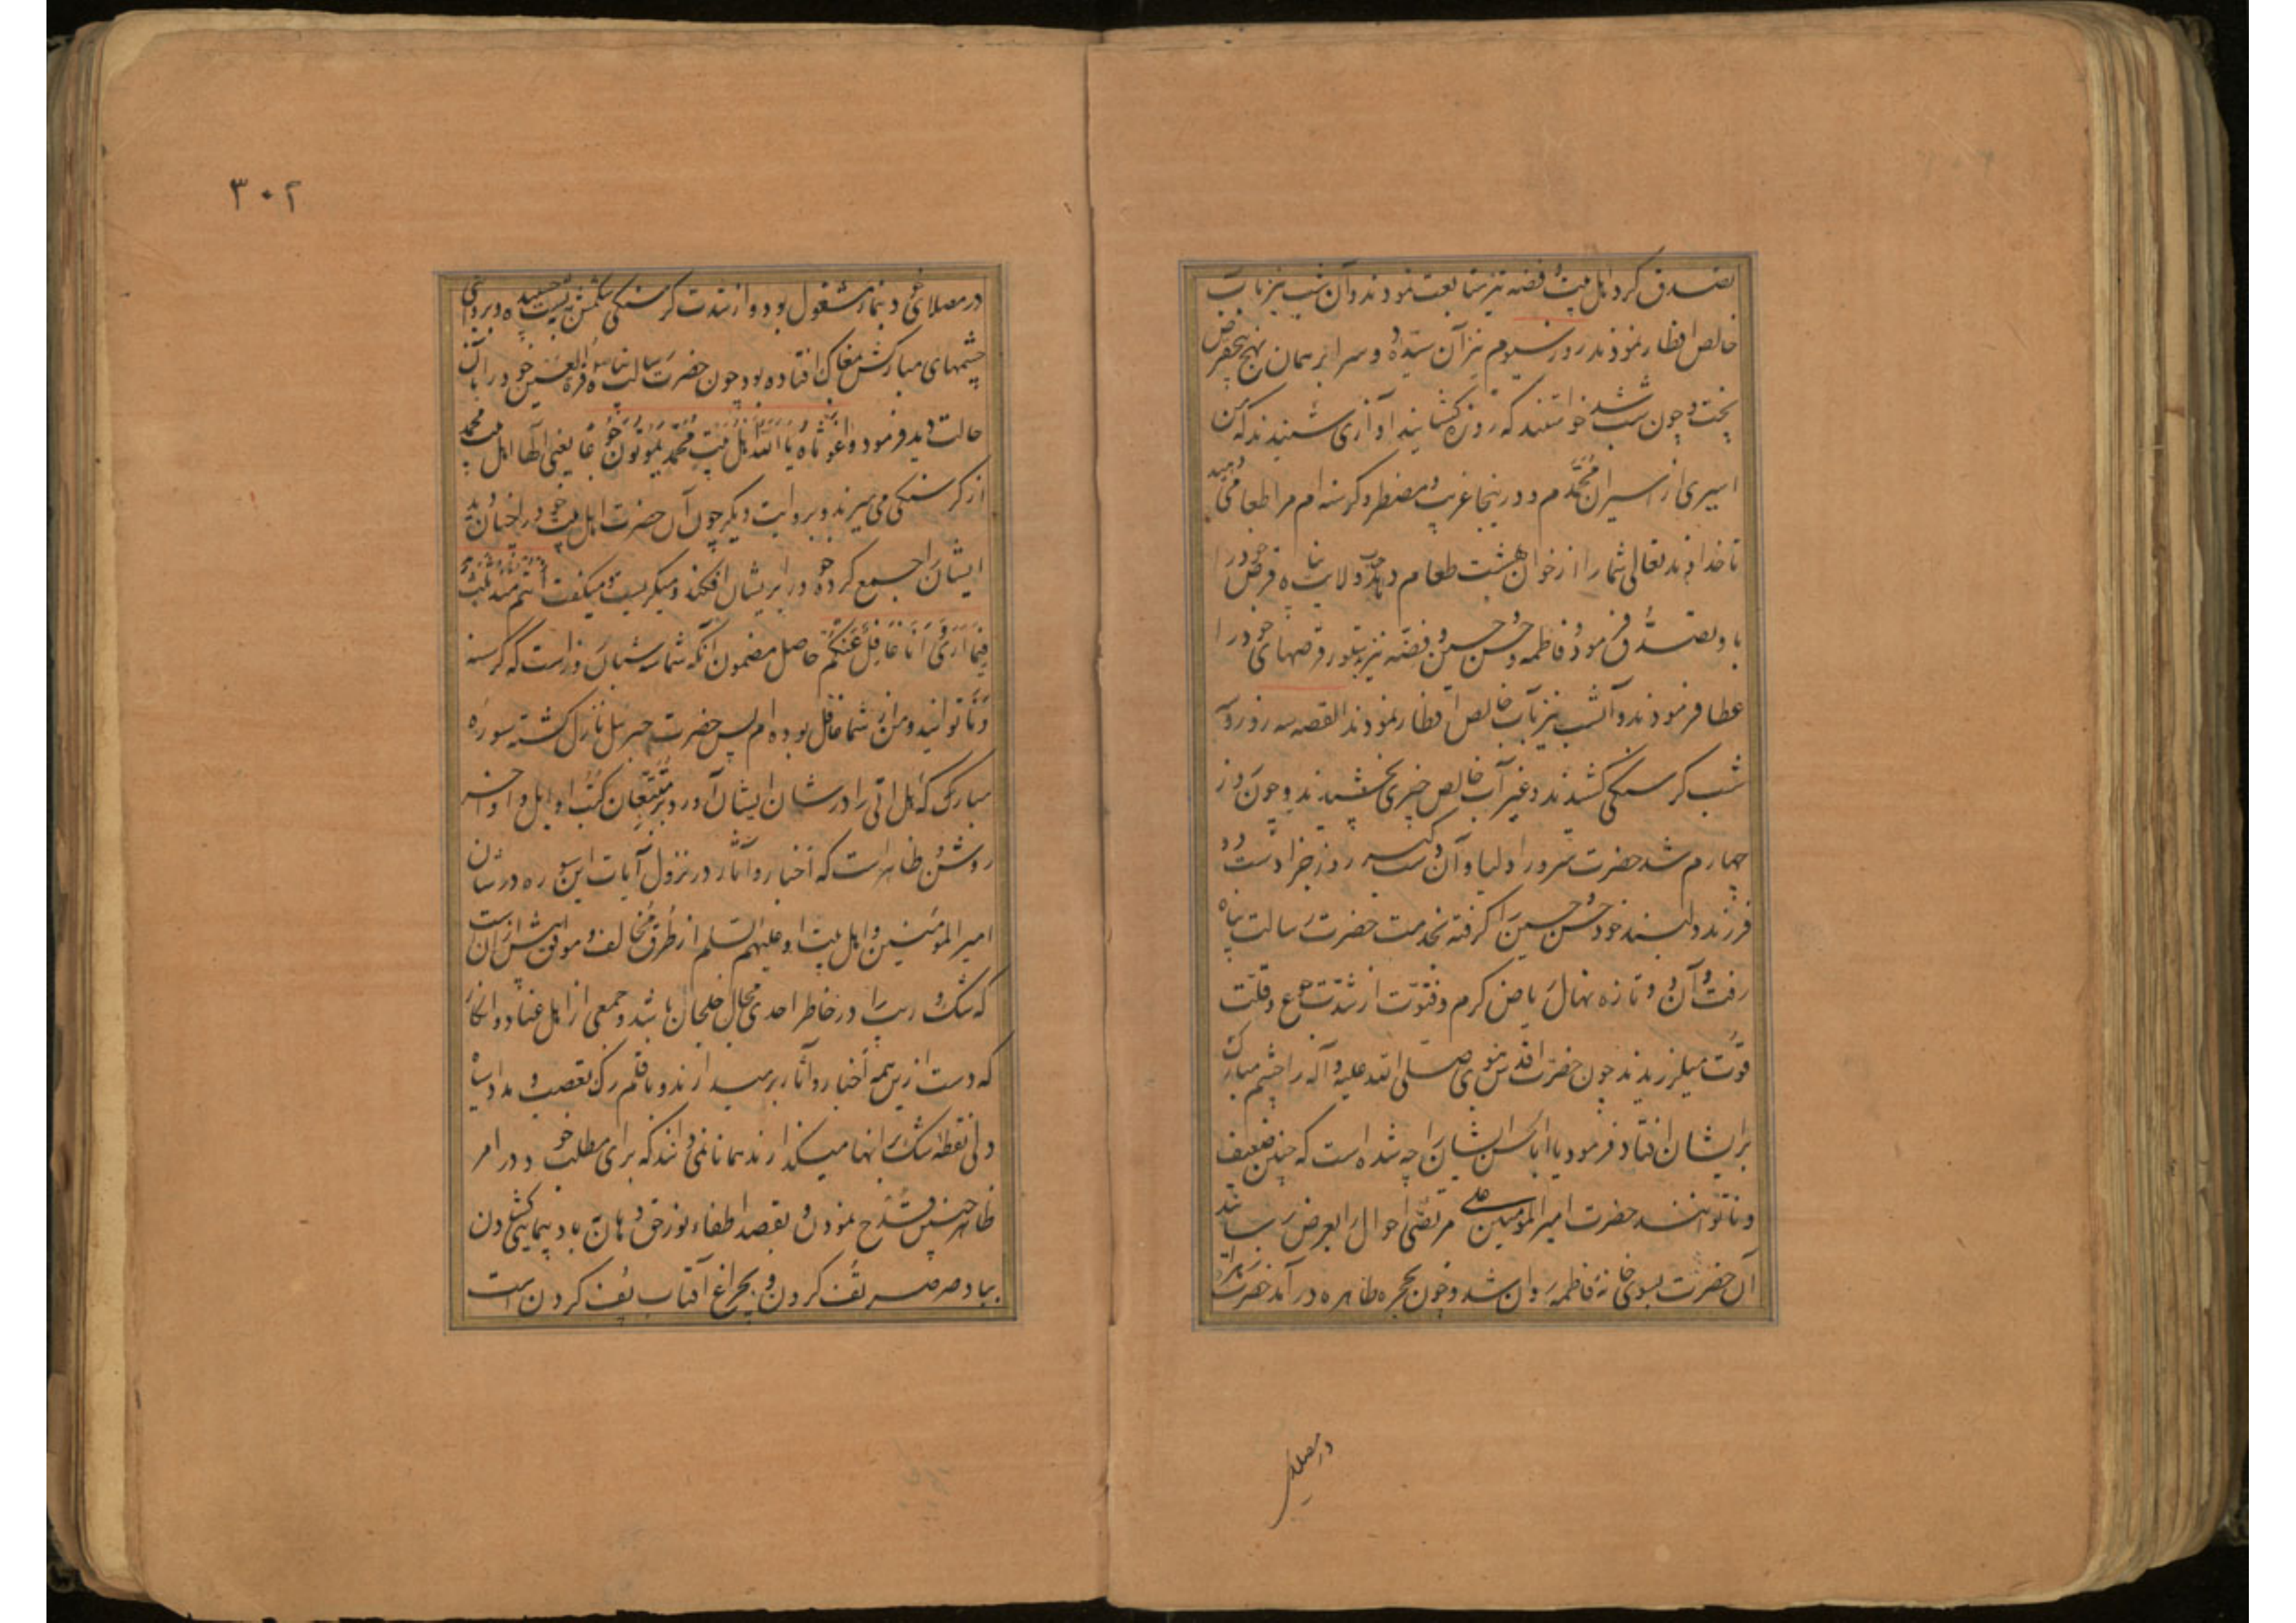 تصدق کرد و اهل بیت و فضه نیز متابعت نمودند و آن شب نیز بآب
خالص افطار نمودند روز سیوم نیز آن سیده دو سرا بر همان نهج پنج قرص
پخت و چون شب شد خواستند که روزه کشایند آوازی شنیدند که من
اسیری از اسیران محمدم و در اینجا غریب و مضطر و کرسنه ام مرا طعامی دهید
تا خداوند تعالی شما را از خوان بهشت طعام دهد ولایت پناه قرص خود را
باو تصدق فرمود و فاطمه و حسن و حسین و فضه نیز بدستور قرصهای خود را
عطا فرمودند و آنشب نیز بآب خالص افطار نمودند القصه سه روز و سه
شب کرسنکی کشیدند و غیر آب خالص چیزی نچشیدند و چون روز
چهارم شد حضرت سرور اولیا و آن دستکیر روز جزا دست دو
فرزند دلبند خود حسن و حسین را کرفته بخدمت حضرت رسالت پناه
رفت و آن دو تازه نهال ریاض کرم و فتوت از شدت جوع و قلت
قوت میلرزیدند چون حضرت اقدس نبوی صلی الله علیه و آله را چشم مبارک
بر ایشان افتاد فرمود یا ابا الحسن ایشان را چه شده است که چنین ضعیف
و ناتوانند حضرت امیر المومنین علی مرتضی احوال را بعرض رسانید
آن حضرت بسوی خانهٔ فاطمه روان شد و چون بحجره طاهره در آمد حضرت زهرا
در مصلای
۳۰۲
در مصلای خود بنماز مشغول بود و از شدت کرسنکی شکمش به پشت چسپیده و
چشمهای مبارکش بمغاک افتاده بود چون حضرت رسالت پناه قرة العین خود را بآن
حالت دید فرمود واغوثاه یا الله اهل بیت محمد یموتون جوعا یعنی الها اهل بیت محمد
از کرسنکی می میرند و بروایت دیکر چون آن حضرت اهل بیت خود را چنان دید
ایشان را جمع کرده خود را بر ایشان افکند و میکریست و میکفت انتم منذ ثلث
فیما اری و انا غافل عنکم حاصل مضمون آنکه شما سه شبانروز است که کرسنه
و ناتوانید و من از شما غافل بوده ام پس حضرت جبرئیل نازل کشته سورهٔ
مبارکه هل اتی را در شان ایشان آورد و بر متتبعان کتب اوایل و اواخر
روشن و ظاهر است که اخبار و آثار در نزول آیات این سوره در شان
امیر المومنین و اهل بیت او علیهم السلام از طرق مخالف و موافق بیش از آن است
که شک و ریب را در خاطر احدی مجال خلجان باشد و جمعی از اهل عناد و انکار
که دست ازین همه اخبار و آثار بر میدارند و با قلم رک تعصب و مداد سیاه
دلی نقطه شک بر آنها میکذارند همانا نمی دانند که برای مطلب خود در امر
ظاهر چنین قدح نمودن و بقصد اطفاء نور حق دهان بباد پیمایی کشادن
بباد صرصر تف کردن و بچراغ آفتاب پف کردن است